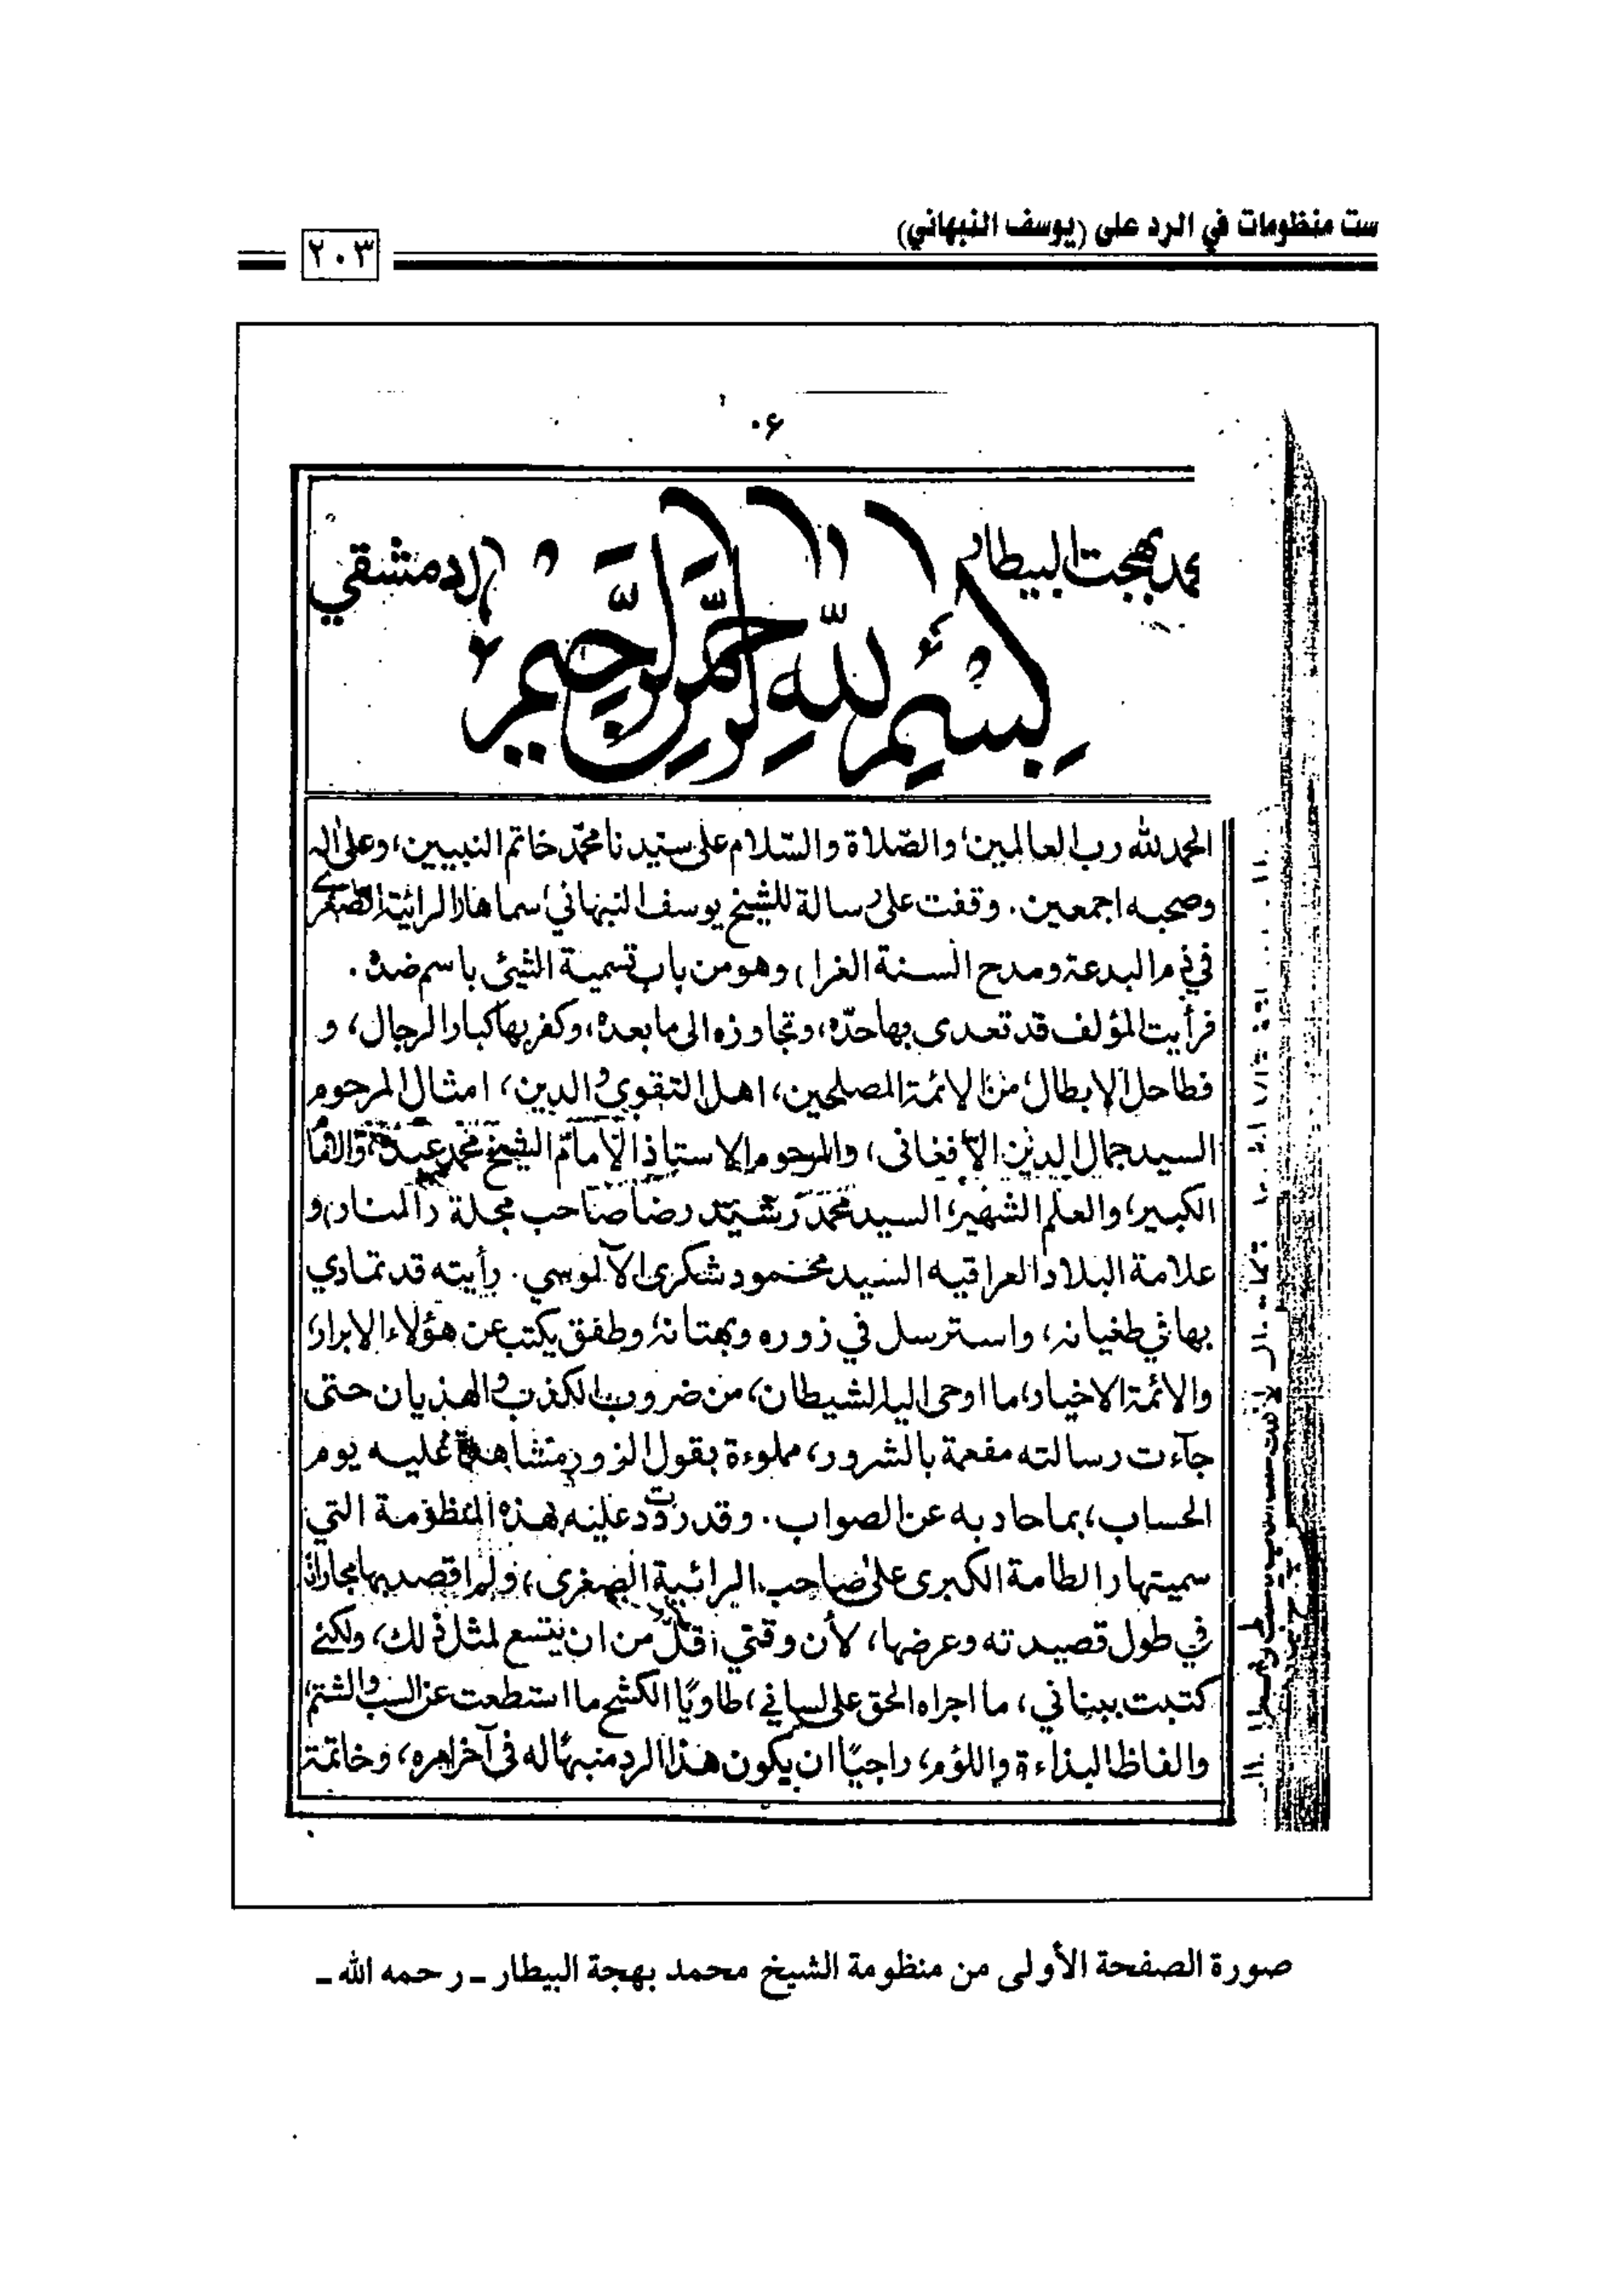 ست منظومات في الرد على (يوسف النبهاني)
٢٠٣
محمد بهجت البيطار
الدمشقي
بسم الله الرحمن الرحيم
الحمد لله رب العالمين، والصلاة والسلام على سيدنا محمد خاتم النبيين، وعلى آله
وصحبه اجمعين. وقفت على رسالة للشيخ يوسف النبهاني اسماها (الرائية الصغرى
في ذم البدعة ومدح السنة الغرا) وهو من باب تسمية الشيئ باسم ضده.
فرأيت المؤلف قد تعدى بها حدّه، وتجاوزه الى ما بعده، وكفر بها كبار الرجال، و
فطاحل الابطال، من الائمة المصلحين، اهل التقوى والدين، امثال المرحوم
السيد جمال الدين الافغاني، والمرحوم الاستاذ الامام الشيخ محمد عبده،
الكبير، والعلم الشهير، السيد محمد رشيد رضا صاحب مجلة (المنار) و
علامة البلاد العراقيه السيد محمود شكري الآلوسي. رأيته قد تمادي
بها في طغيانه، واسترسل في زوره وبهتانه، وطفق يكتب عن هؤلاء الابرار،
والائمة الاخيار، ما اوحى اليه الشيطان، من ضروب الكذب والهذيان حتى
جآءت رسالته مفعمة بالشرور، مملوءة بقول الزور، عليه يوم
الحساب، بما حاد به عن الصواب. وقد رددت عليه بهذه المنظومة التي
سميتها (الطامة الكبرى على صاحب الرائية الصغرى) ولم اقصد بها مجاراته
في طول قصيدته وعرضها، لأن وقتي اقلّ من ان يتسع لمثل ذلك، ولكني
كتبت ببناني، ما اجراه الحق على لساني، طاويًا الكشح ما استطعت عن السب والشتم،
والفاظ البذاءة واللؤم، راجيًا ان يكون هذا الرد منبهًا له في آخر امره، وخاتمة
صورة الصفحة الأولى من منظومة الشيخ محمد بهجة البيطار ـ رحمه الله ـ